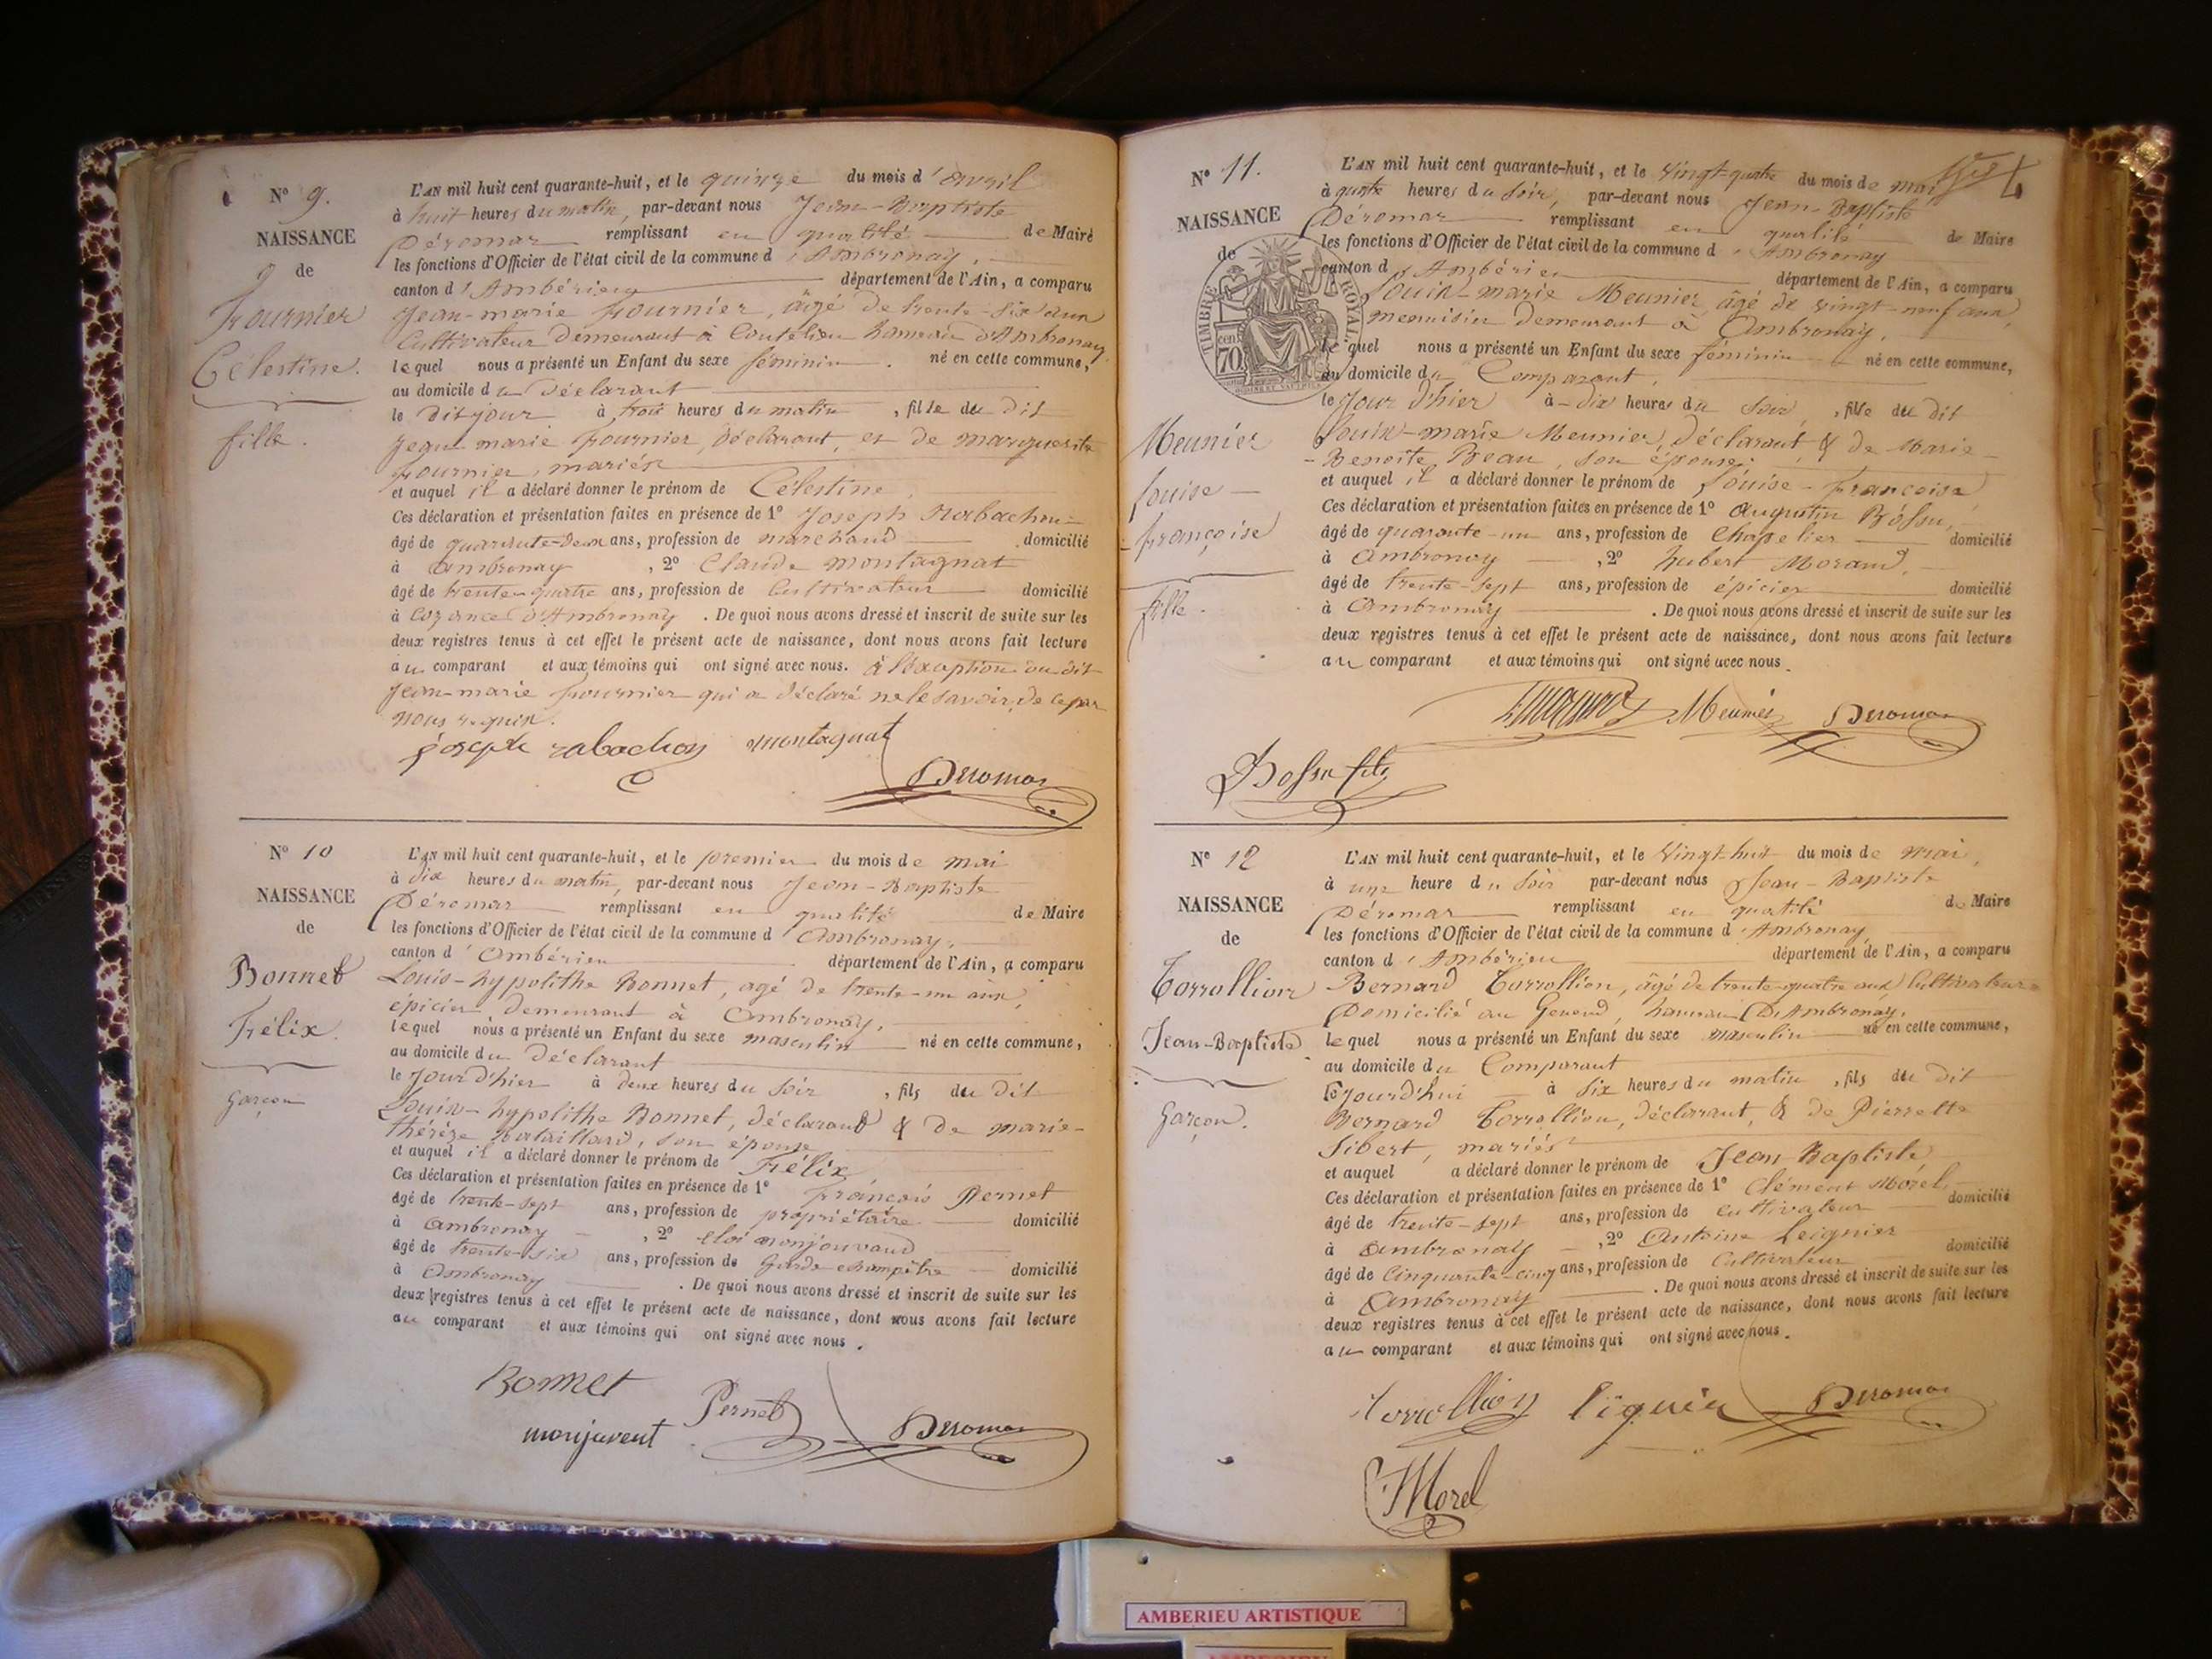 N° 9.
NAISSANCE
de
Fournier
Célestine.
fille.
L'AN mil huit cent quarante-huit, et le quinze du mois d'avril
à huit heures du matin, par-devant nous Jean-Baptiste
Déromas remplissant en qualité de Maire
les fonctions d'Officier de l'état civil de la commune d'Ambronay,
canton d'Ambérieu département de l'Ain, a comparu
Jean-marie Fournier, âgé de trente-six ans
Cultivateur demeurant à Coutelieu hameau d'Ambronay.
lequel nous a présenté un Enfant du sexe féminin né en cette commune,
au domicile du déclarant
le dit jour à trois heures du matin, fille du dit
Jean marie Fournier, déclarant, et de marguerite
Fournier, mariés
et auquel il a déclaré donner le prénom de Célestine,
Ces déclaration et présentation faites en présence de 1° Joseph Rabachon
âgé de quarante-deux ans, profession de marchand domicilié
à Ambronay, 2° Claude Montagnat
âgé de trente-quatre ans, profession de Cultivateur domicilié
à Cozance d'Ambronay. De quoi nous avons dressé et inscrit de suite sur les
deux registres tenus à cet effet le présent acte de naissance, dont nous avons fait lecture
au comparant et aux témoins qui ont signé avec nous. à l'exception du dit
Jean-marie Fournier qui a déclaré ne le savoir, de ce par
nous requis.
joseph rabachon montagnat
Deromas
N° 10
NAISSANCE
de
Bonnet
Félix.
Garçon
L'AN mil huit cent quarante-huit, et le premier du mois de mai
à dix heures du matin, par-devant nous Jean-Baptiste
Déromas remplissant en qualité de Maire
les fonctions d'Officier de l'état civil de la commune d'Ambronay,
canton d'Ambérieu département de l'Ain, a comparu
Louis-hypolithe Bonnet, agé de trente-un ans,
épicier, demeurant à Ambronay,
lequel nous a présenté un Enfant du sexe masculin né en cette commune,
au domicile du déclarant
le Jour d'hier à deux heures du soir, fils du dit
Louis-hypolithe Bonnet, déclarant & de marie-
thérèze Bataillard, son épouse
et auquel il a déclaré donner le prénom de Félix
Ces déclaration et présentation faites en présence de 1° François Pernet
âgé de trente-sept ans, profession de propriétaire domicilié
à Ambronay, 2° eloi monjouvand
âgé de trente-six ans, profession de Garde champêtre domicilié
à Ambronay. De quoi nous avons dressé et inscrit de suite sur les
deux registres tenus à cet effet le présent acte de naissance, dont nous avons fait lecture
au comparant et aux témoins qui ont signé avec nous.
Bonnet
Pernet
monjuvent
Deromas
N° 11.
NAISSANCE
de
TIMBRE ROYAL
70 cen
Meunier
Louise-
Françoise
fille.
4
L'AN mil huit cent quarante-huit, et le vingt-quatre du mois de mai
à quatre heures du soir, par-devant nous Jean-Baptiste
Déromas remplissant en qualité de Maire
les fonctions d'Officier de l'état civil de la commune d'Ambronay
canton d'Ambérieu département de l'Ain, a comparu
Louis-marie Meunier, âgé de vingt-neuf ans,
menuisier demeurant à Ambronay,
lequel nous a présenté un Enfant du sexe féminin né en cette commune,
au domicile du Comparant,
le Jour d'hier à dix heures du soir, fille du dit
Louis-marie Meunier, déclarant, & de Marie-
Benoîte Beau, son épouse.
et auquel il a déclaré donner le prénom de Louise-Françoise
Ces déclaration et présentation faites en présence de 1° Augustin Bossu,
âgé de quarante-un ans, profession de Chapelier domicilié
à Ambronay, 2° hubert Morand,
âgé de trente-sept ans, profession de épicier domicilié
à Ambronay. De quoi nous avons dressé et inscrit de suite sur les
deux registres tenus à cet effet le présent acte de naissance, dont nous avons fait lecture
au comparant et aux témoins qui ont signé avec nous.
Meunier Deromas
Bossu fils
N° 12
NAISSANCE
de
Corrollion
Jean-Baptiste
Garçon.
L'AN mil huit cent quarante-huit, et le vingt-huit du mois de mai,
à une heure du soir par-devant nous Jean-Baptiste
Déromas remplissant en qualité de Maire
les fonctions d'Officier de l'état civil de la commune d'Ambronay
canton d'Ambérieu département de l'Ain, a comparu
Bernard Corrollion, âgé de trente-quatre ans, Cultivateur
Domicilié au Genoud, hameau d'Ambronay,
lequel nous a présenté un Enfant du sexe masculin né en cette commune,
au domicile du Comparant
Cejourd'hui à six heures du matin, fils du dit
Bernard Corrollion, déclarant, & de Pierrette
Sibert, mariés
et auquel a déclaré donner le prénom de Jean-Baptiste
Ces déclaration et présentation faites en présence de 1° Clément Morel,
âgé de trente-sept ans, profession de cultivateur domicilié
à Ambronay, 2° Antoine Leignier
âgé de Cinquante-cinq ans, profession de Cultivateur domicilié
à Ambronay. De quoi nous avons dressé et inscrit de suite sur les
deux registres tenus à cet effet le présent acte de naissance, dont nous avons fait lecture
au comparant et aux témoins qui ont signé avec nous.
Corrollion Deromas
Morel
AMBERIEU ARTISTIQUE